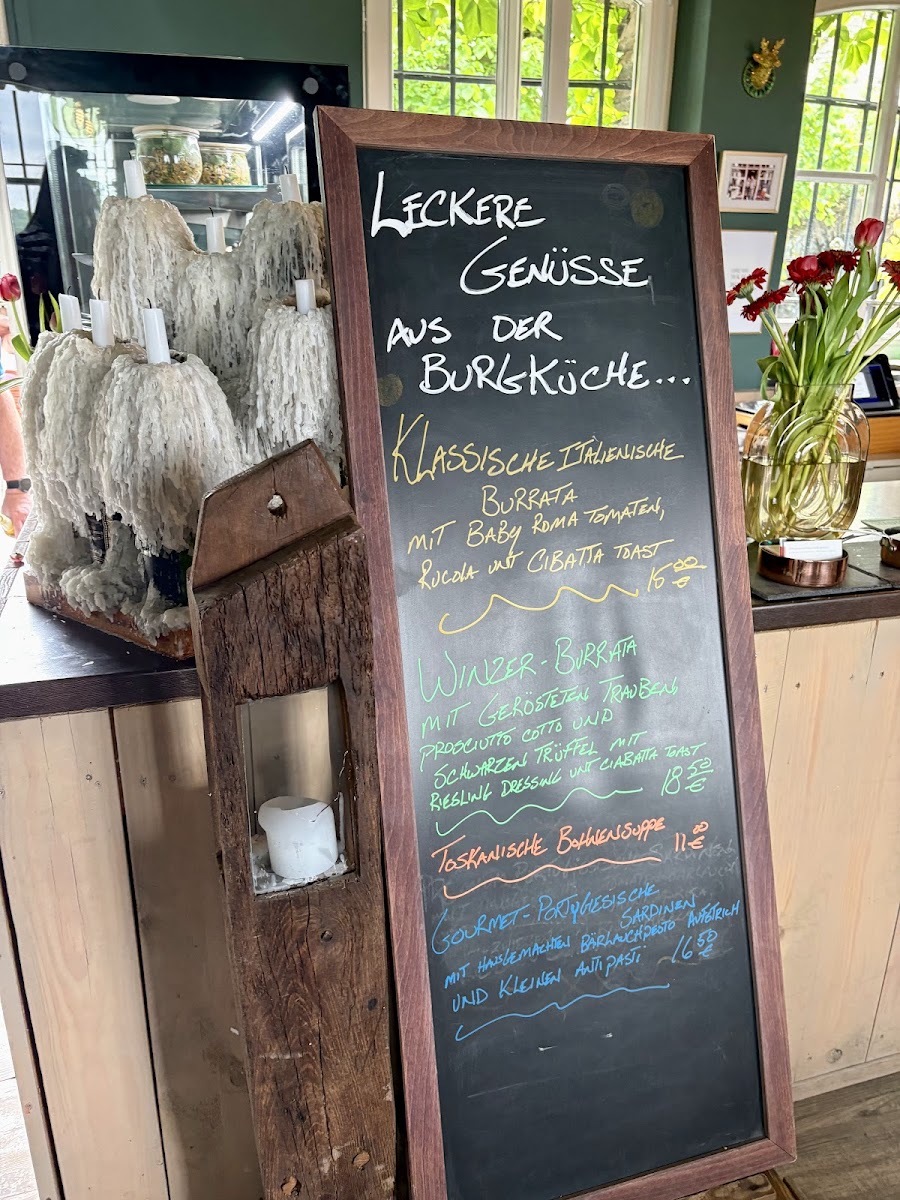 LECKERE
GENÜSSE
AUS DER
BURGKÜCHE...
KLASSISCHE ITALIENISCHE
BURRATA
MIT BABY ROMA TOMATEN,
RUCOLA UNT CIBATTA TOAST
15 00 €
WINZER-BURRATA
MIT GERÖSTETEN TRAUBEN,
PROSCIUTTO COTTO UND
SCHWARZEN TRÜFFEL MIT
RIESLING DRESSING UNT CIABATTA TOAST
18 50 €
TOSKANISCHE BOHNENSUPPE 11 00 €
GOURMET-PORTYGESISCHE
SARDINEN
MIT HAUSGEMACHTEN BÄRLAUCHPESTO AUFSTRICH
UND KLEINEN ANTIPASTI 16 50 €